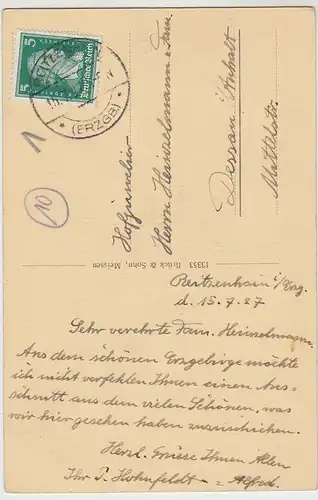 5 5
Deutsches Reich
(ERZGB.)
1
10
Hofjuwelier
Herrn Heinzelmann u. Fam.
Dessau i/Anhalt
Mittelstr.
13353 Brück & Sohn, Meissen
Reitzenhain i/Erzg.
d. 15.7.27
Sehr verehrte Fam. Heinzelmann.
Aus dem schönen Erzgebirge möchte
ich nicht verfehlen Ihnen einen Aus-
schnitt aus dem vielen Schönen, was
wir hier gesehen haben zuzuschicken.
Herzl. Grüsse Ihnen Allen
Ihr P. Hohnfeldt - Alfred.